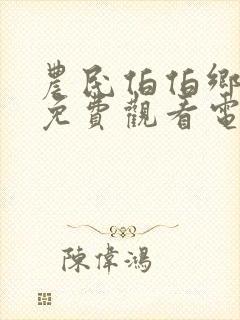 農民伯伯鄉
免費觀看電
陳偉鴻